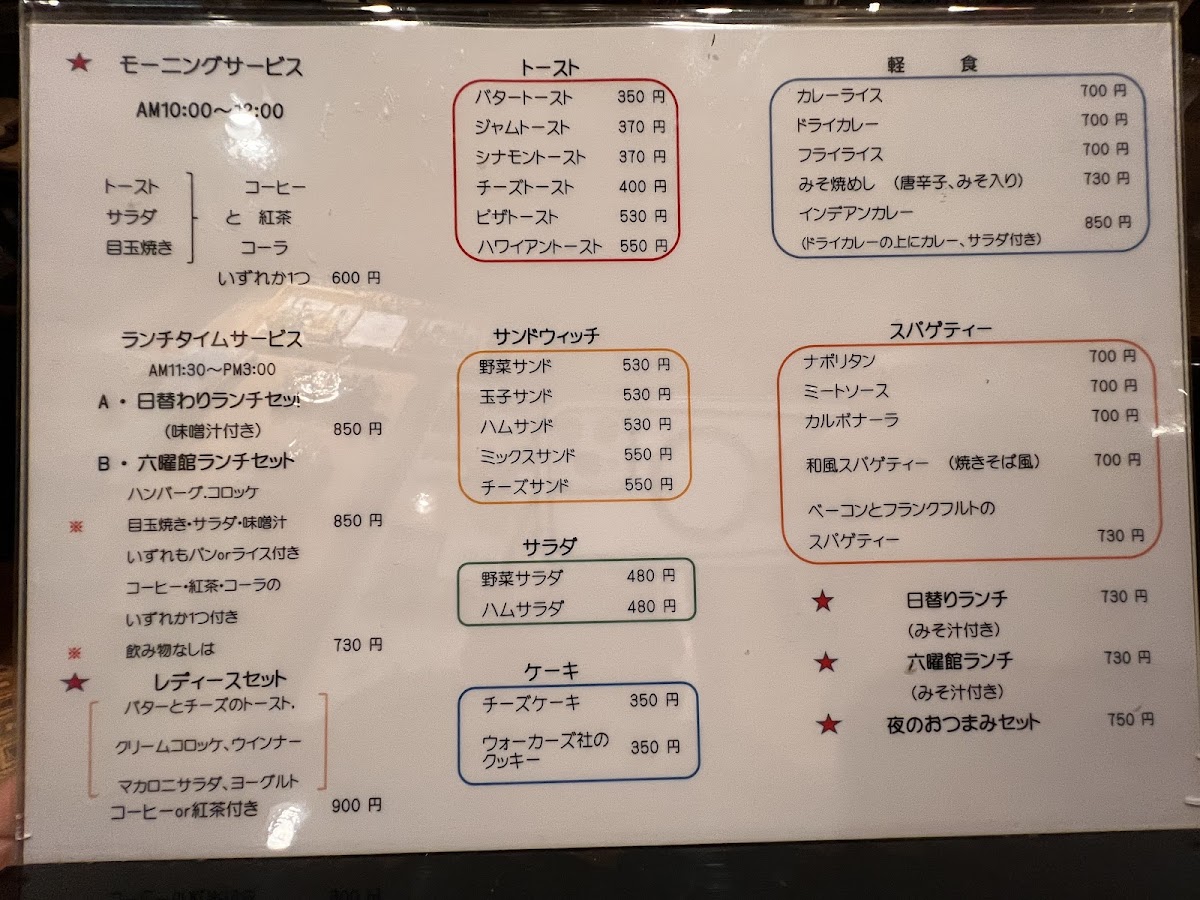 ★ モーニングサービス
AM10:00～12:00
トースト コーヒー
サラダ と 紅茶
目玉焼き コーラ
いずれか1つ 600 円
ランチタイムサービス
AM11:30～PM3:00
A・日替わりランチセッ
(味噌汁付き) 850 円
B・六曜館ランチセット
ハンバーグ.コロッケ
※ 目玉焼き・サラダ・味噌汁 850 円
いずれもパンorライス付き
コーヒー・紅茶・コーラの
いずれか1つ付き
※ 飲み物なしは 730 円
★ レディースセット
バターとチーズのトースト.
クリームコロッケ、ウインナー
マカロニサラダ、ヨーグルト
コーヒーor紅茶付き 900 円
トースト
バタートースト 350 円
ジャムトースト 370 円
シナモントースト 370 円
チーズトースト 400 円
ピザトースト 530 円
ハワイアントースト 550 円
サンドウィッチ
野菜サンド 530 円
玉子サンド 530 円
ハムサンド 530 円
ミックスサンド 550 円
チーズサンド 550 円
サラダ
野菜サラダ 480 円
ハムサラダ 480 円
ケーキ
チーズケーキ 350 円
ウォーカーズ社の
クッキー 350 円
軽 食
カレーライス 700 円
ドライカレー 700 円
フライライス 700 円
みそ焼めし (唐辛子、みそ入り) 730 円
インデアンカレー 850 円
(ドライカレーの上にカレー、サラダ付き)
スパゲティー
ナポリタン 700 円
ミートソース 700 円
カルボナーラ 700 円
和風スパゲティー (焼きそば風) 700 円
ベーコンとフランクフルトの
スパゲティー 730 円
★ 日替りランチ 730 円
(みそ汁付き)
★ 六曜館ランチ 730 円
(みそ汁付き)
★ 夜のおつまみセット 750 円